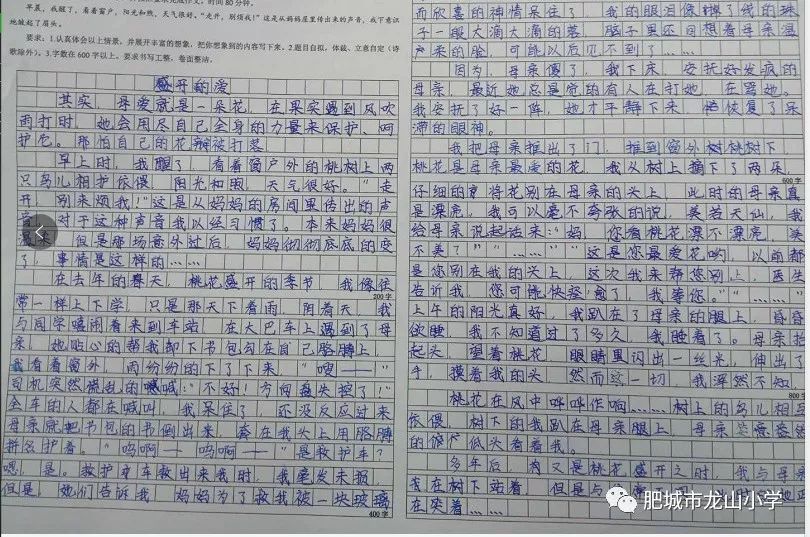 时间80分钟。
早晨，我醒了，看着窗户，阳光和煦，天气很好。“走开，别烦我！”这是从妈妈屋里传出来的声音，我下意识
地皱起了眉头。
要求：1.认真体会以上情景，并展开丰富的想象，把你想象到的内容写下来。2.题目自拟，体裁、立意自定（诗
歌除外）。3.字数在600字以上。要求书写工整，卷面整洁。
盛开的爱
其实，母爱就是一朵花，在果实遇到风吹
雨打时，她会用尽自己全身的力量来保护、呵
护它。那怕自己的花瓣被打落
早上时，我醒了，看着窗户外的桃树上两
只鸟儿相护依偎，阳光和煦，天气很好。“走
开，别来烦我！”这是从妈妈的房间里传出的声
音，对于这种声音我以经习惯了。本来妈妈很
但是那场意外过后，妈妈彻彻底底的变
了，事情是这样的……
在去年的春天，桃花盛开的季节，我像往
200字
常一样上下学，只是那天下着雨，阴着天，我
与同学嘻闹着来到车站，在大巴车上遇到了母
亲，她贴心的帮我卸下书包勾在自己胳膊上，
我看着窗外，雨纷纷的下了下来，“嗖——”
司机突然慌乱的喊：“不好！方向盘失控了！”
全车的人都在喊叫，我呆住了，还没反应过来
母亲就把书包的书倒出来，套在我头上用胳膊
拼命护着。“呜啊——呜啊——”是救护车？
嗯，是。救护车救出来我时，我毫发未损，
但是，她们告诉我，妈妈为了救我被一块玻璃
400字
而欣喜的神情呆住了，我的眼泪像掉了线的珠
子一般大滴大滴的落，脑子里还回想着母亲温
柔的脸，可能以后见不到了……
因为，母亲傻了，我下床，安抚好发疯的
母亲，最近她总是说的有人在打她，在骂她。
我安抚了好一阵，她才平静下来，恢复了呆
滞的眼神。
我把母亲推出了门，推到窗外树林树下，
桃花是母亲最爱的花，我从树上摘下了两朵，
600字
仔细的将花别在母亲的头上，此时的母亲真
是漂亮，我可以毫不夸张的说，美若天仙，我
给母亲说起话来：“妈，您看桃花漂不漂亮，美
不美？”“……”“这是您最爱花哟，以前都
是您别在我的头上，这次我来替您别上，医生
告诉我，您可能快痊愈了，我等您。”“……”
上午的阳光真好，我趴在了母亲的腿上，昏昏
欲睡，我不知道过了多久，我睡着了。母亲抬
起头，望着桃花，眼睛里闪出一丝光，伸出了
手，摸着我的头，然而这一切，我浑然不知。
800字
桃花在风中哗哗作响……树上的鸟儿相互
依偎，树下的我趴在母亲腿上，母亲
的低头看着我。
多年后，又是桃花盛开之时，我与母亲
在树下站着，但是与
在笑着……
肥城市龙山小学